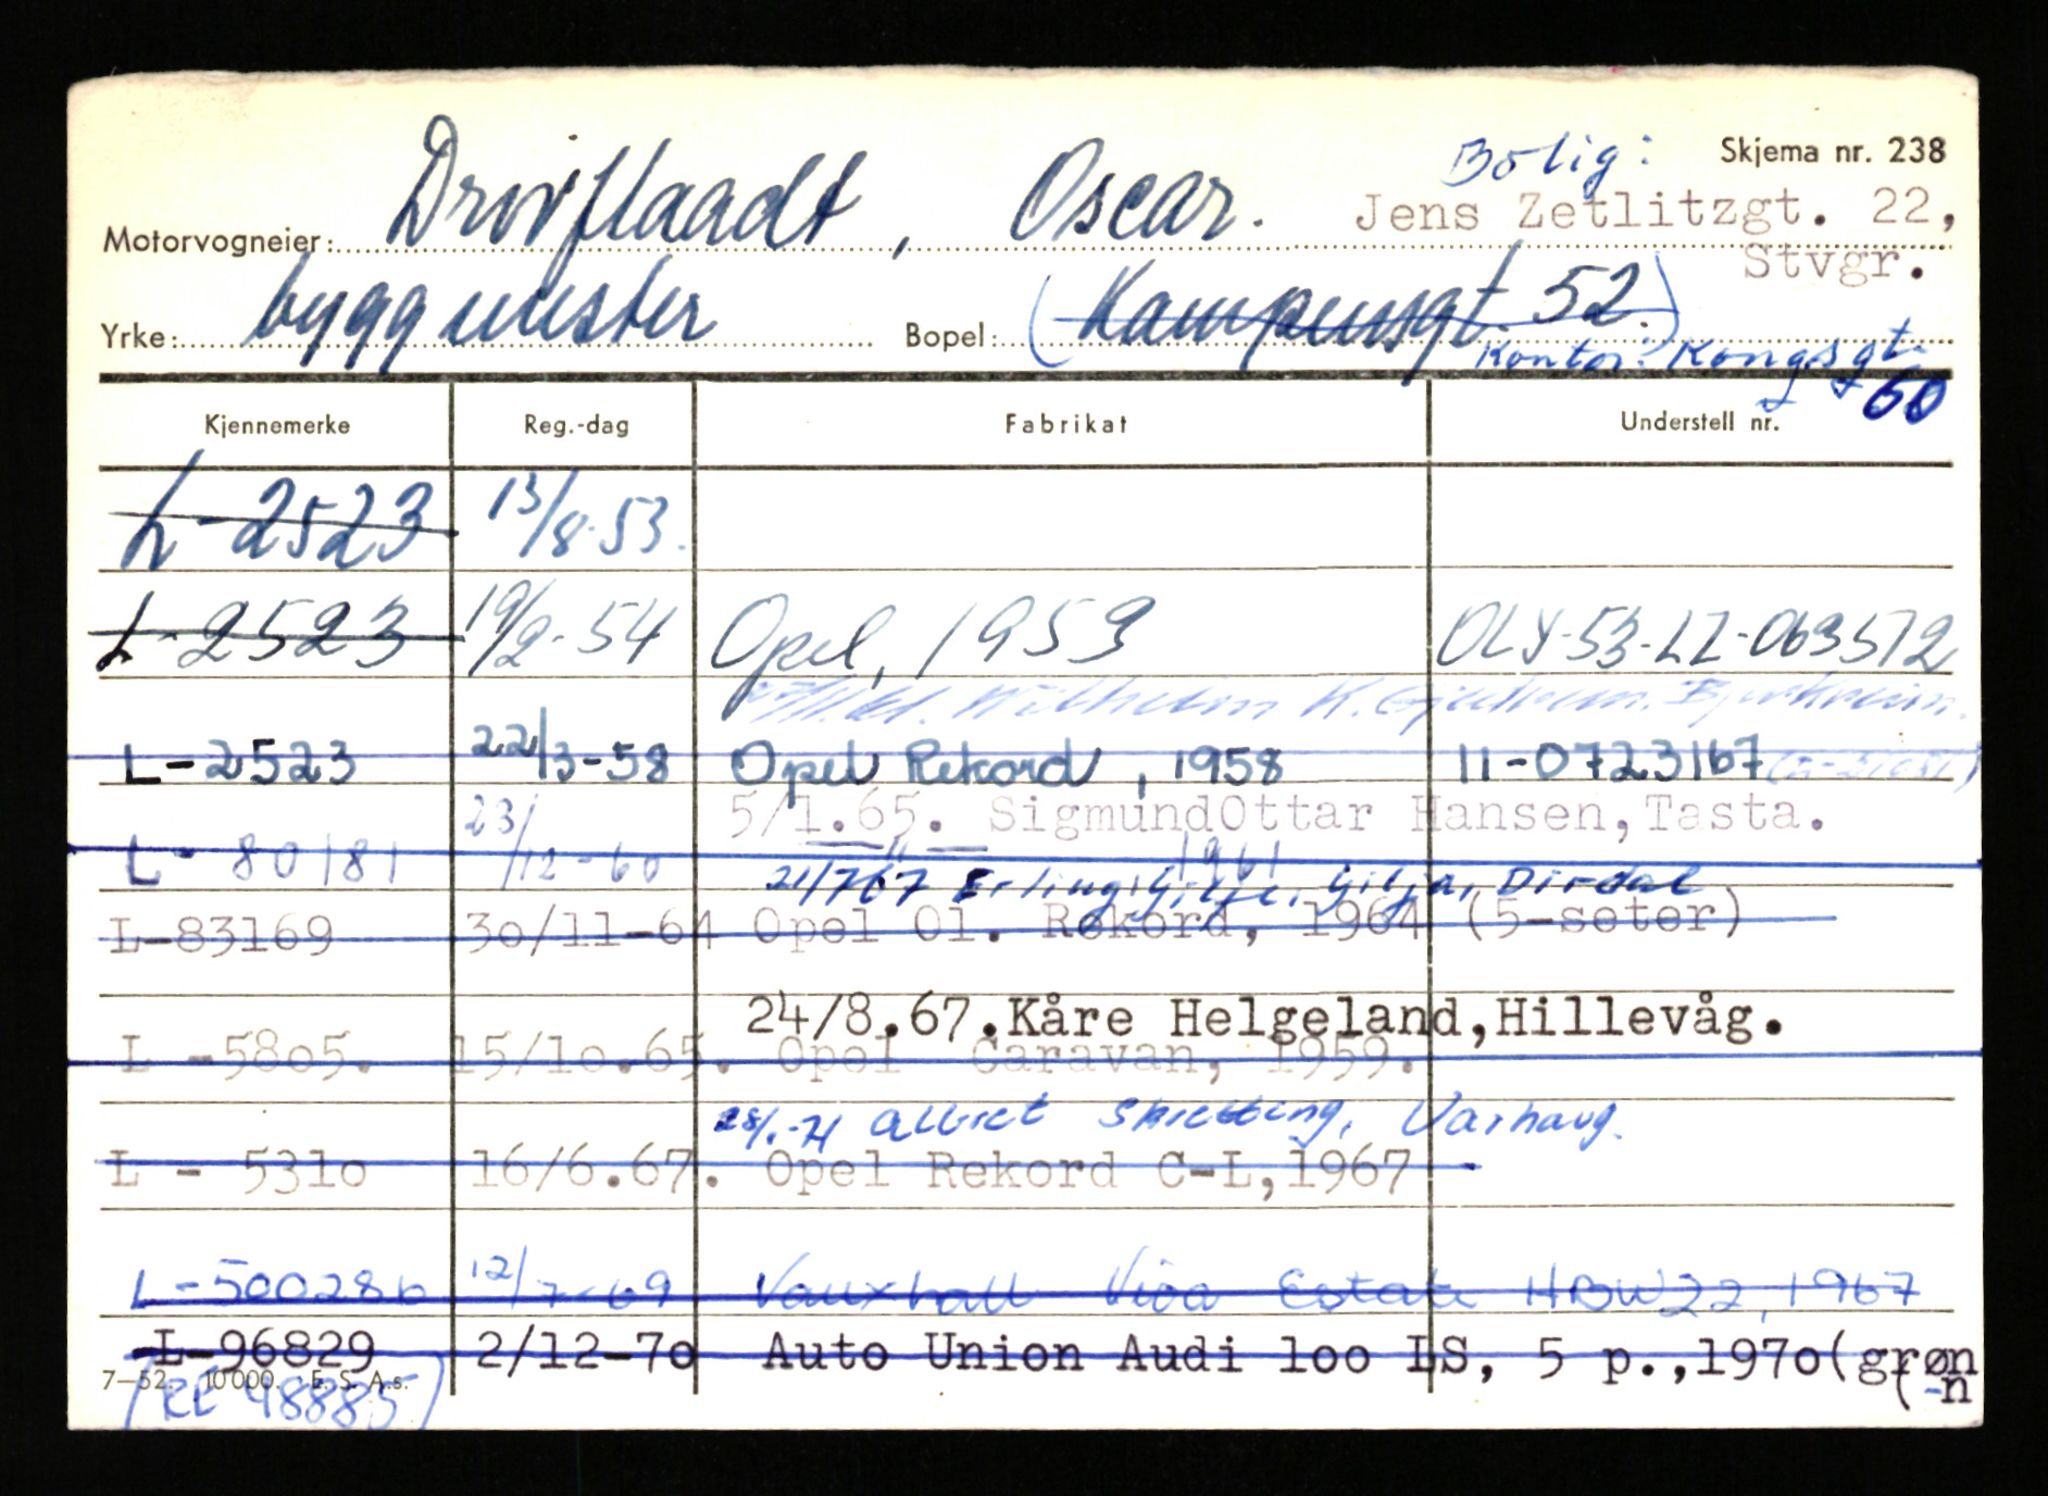 Bolig: Skjema nr. 238
Motorvogneier: Drovflaadt, Oscar. Jens Zetlitzgt. 22,
Stvgr.
Yrke: byggmester Bopel: (Kampensgt. 52.)
Kontor: Kongsgt.
60
Kjennemerke Reg.-dag Fabrikat Understell nr.
L-2523 13/8-53.
L-2523 19/2-54 Opel, 1953 OLY-53-LZ-063572
Wilhelm K.
L-2523 22/3-58 Opel Rekord, 1958 11-0723167
5/1.65. SigmundOttar Hansen,Tasta.
L- 80181 23/12-60 1961
21/767 Erling Gilje, Gilja, Dirdal
L-83169 30/11-64 Opel Ol. Rekord, 1964 (5-seter)
24/8.67.Kåre Helgeland,Hillevåg.
L -5805. 15/10.65. Opel Caravan, 1959.
Varhaug.
L - 5310 16/6.67. Opel Rekord C-L,1967
L-500286 12/7-69 Vauxhall Viva Estate HBW22, 1967
L-96829 2/12-70 Auto Union Audi 100 LS, 5 p.,1970(grøn
(-n
7-52. 10000. E.S.A.s.
(RE 98885)